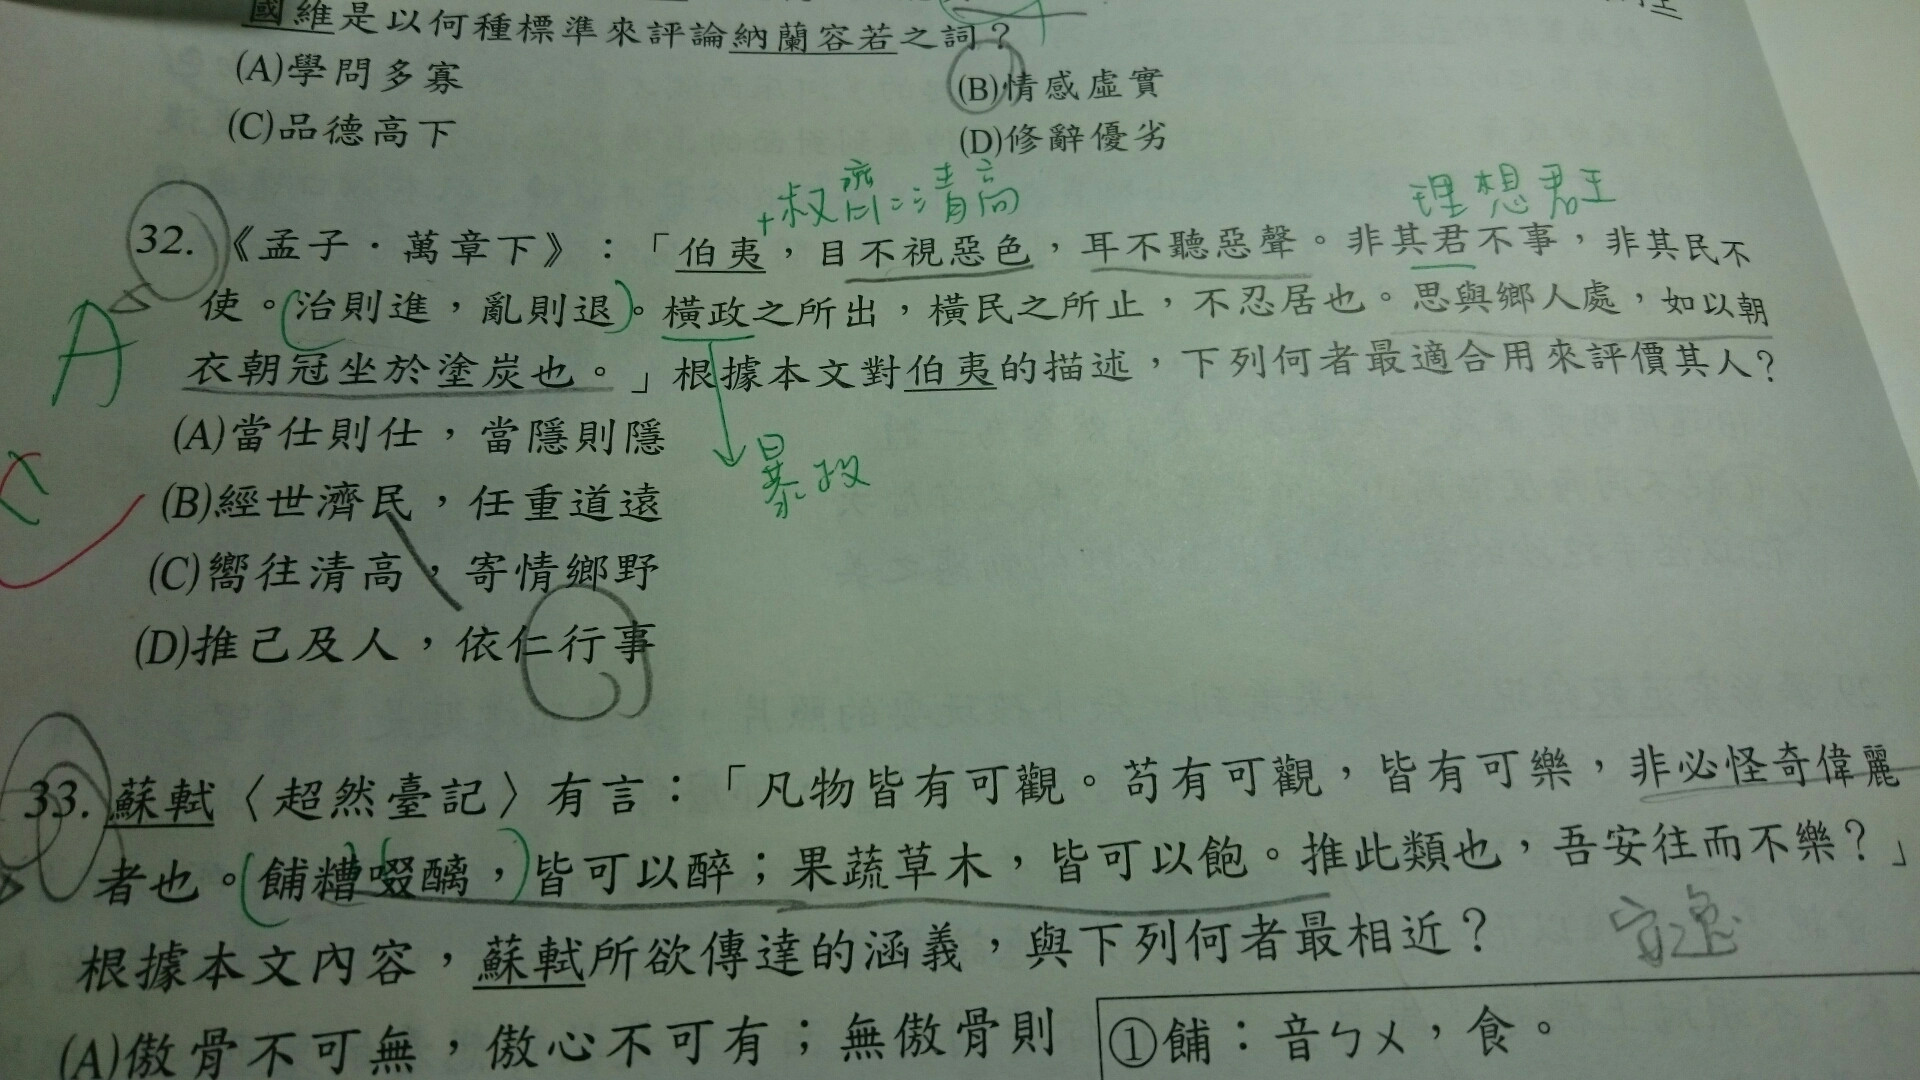 國維是以何種標準來評論納蘭容若之詞?
(A)學問多寡
(B)情感虛實
(C)品德高下
(D)修辭優劣
+叔齊:清高
理想君王
32.《孟子·萬章下》:「伯夷,目不視惡色,耳不聽惡聲。非其君不事,非其民不
使。治則進,亂則退。橫政之所出,橫民之所止,不忍居也。思與鄉人處,如以朝
衣朝冠坐於塗炭也。」根據本文對伯夷的描述,下列何者最適合用來評價其人?
A
(A)當仕則仕,當隱則隱
暴政
(B)經世濟民,任重道遠
(C)嚮往清高,寄情鄉野
(D)推己及人,依仁行事
33.蘇軾〈超然臺記〉有言:「凡物皆有可觀。苟有可觀,皆有可樂,非必怪奇偉麗
者也。餔糟啜醨,皆可以醉;果蔬草木,皆可以飽。推此類也,吾安往而不樂?」
安逸
根據本文內容,蘇軾所欲傳達的涵義,與下列何者最相近?
(A)傲骨不可無,傲心不可有;無傲骨則
①餔:音ㄅㄨ,食。